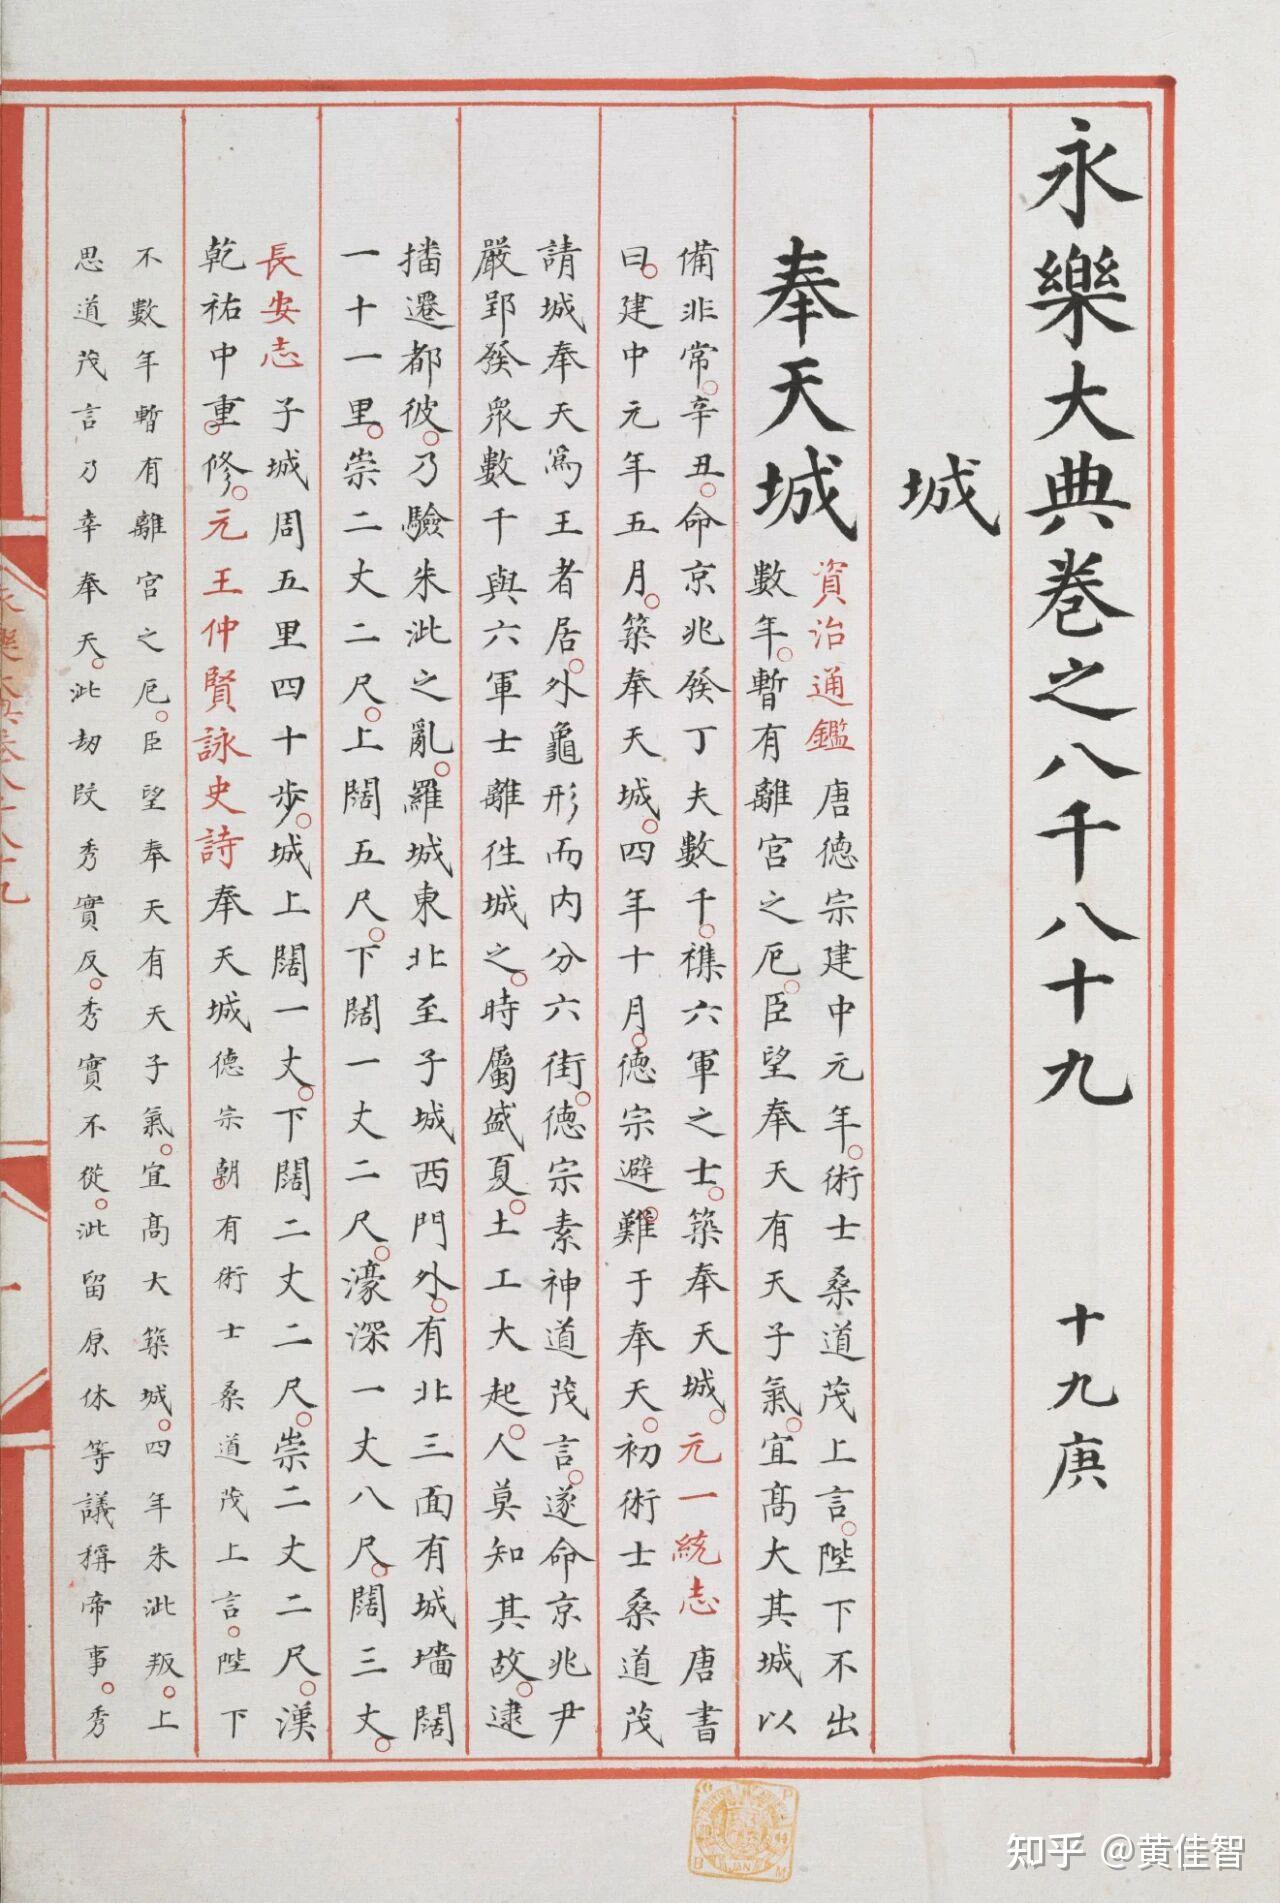 永樂大典卷之八千八十九 十九庚
城
奉天城
資治通鑑唐德宗建中元年術士桑道茂上言陛下不出
數年暫有離宮之厄臣望奉天有天子氣宜髙大其城以
備非常辛丑命京兆發丁夫數千襍六軍之士築奉天城元一統志唐書
曰建中元年五月築奉天城四年十月德宗避難于奉天初術士桑道茂
請城奉天爲王者居外龜形而内分六街德宗素神道茂言遂命京兆尹
嚴郢發眾數千與六軍士離徃城之時屬盛夏土工大起人莫知其故逮
播遷都彼乃驗朱泚之亂羅城東北至子城西門外有北三面有城墻闊
一十一里崇二丈二尺上闊五尺下闊一丈二尺濠深一丈八尺闊三丈
長安志子城周五里四十步城上闊一丈下闊二丈二尺崇二丈二尺漢
乾祐中重修元王仲賢詠史詩奉天城德宗朝有術士桑道茂上言陛下
不數年暫有離宮之厄臣望奉天有天子氣宜髙大築城四年朱泚叛上
思道茂言乃幸奉天泚刼段秀實反秀實不從泚留原休等議稱帝事秀
知乎 @黄佳智